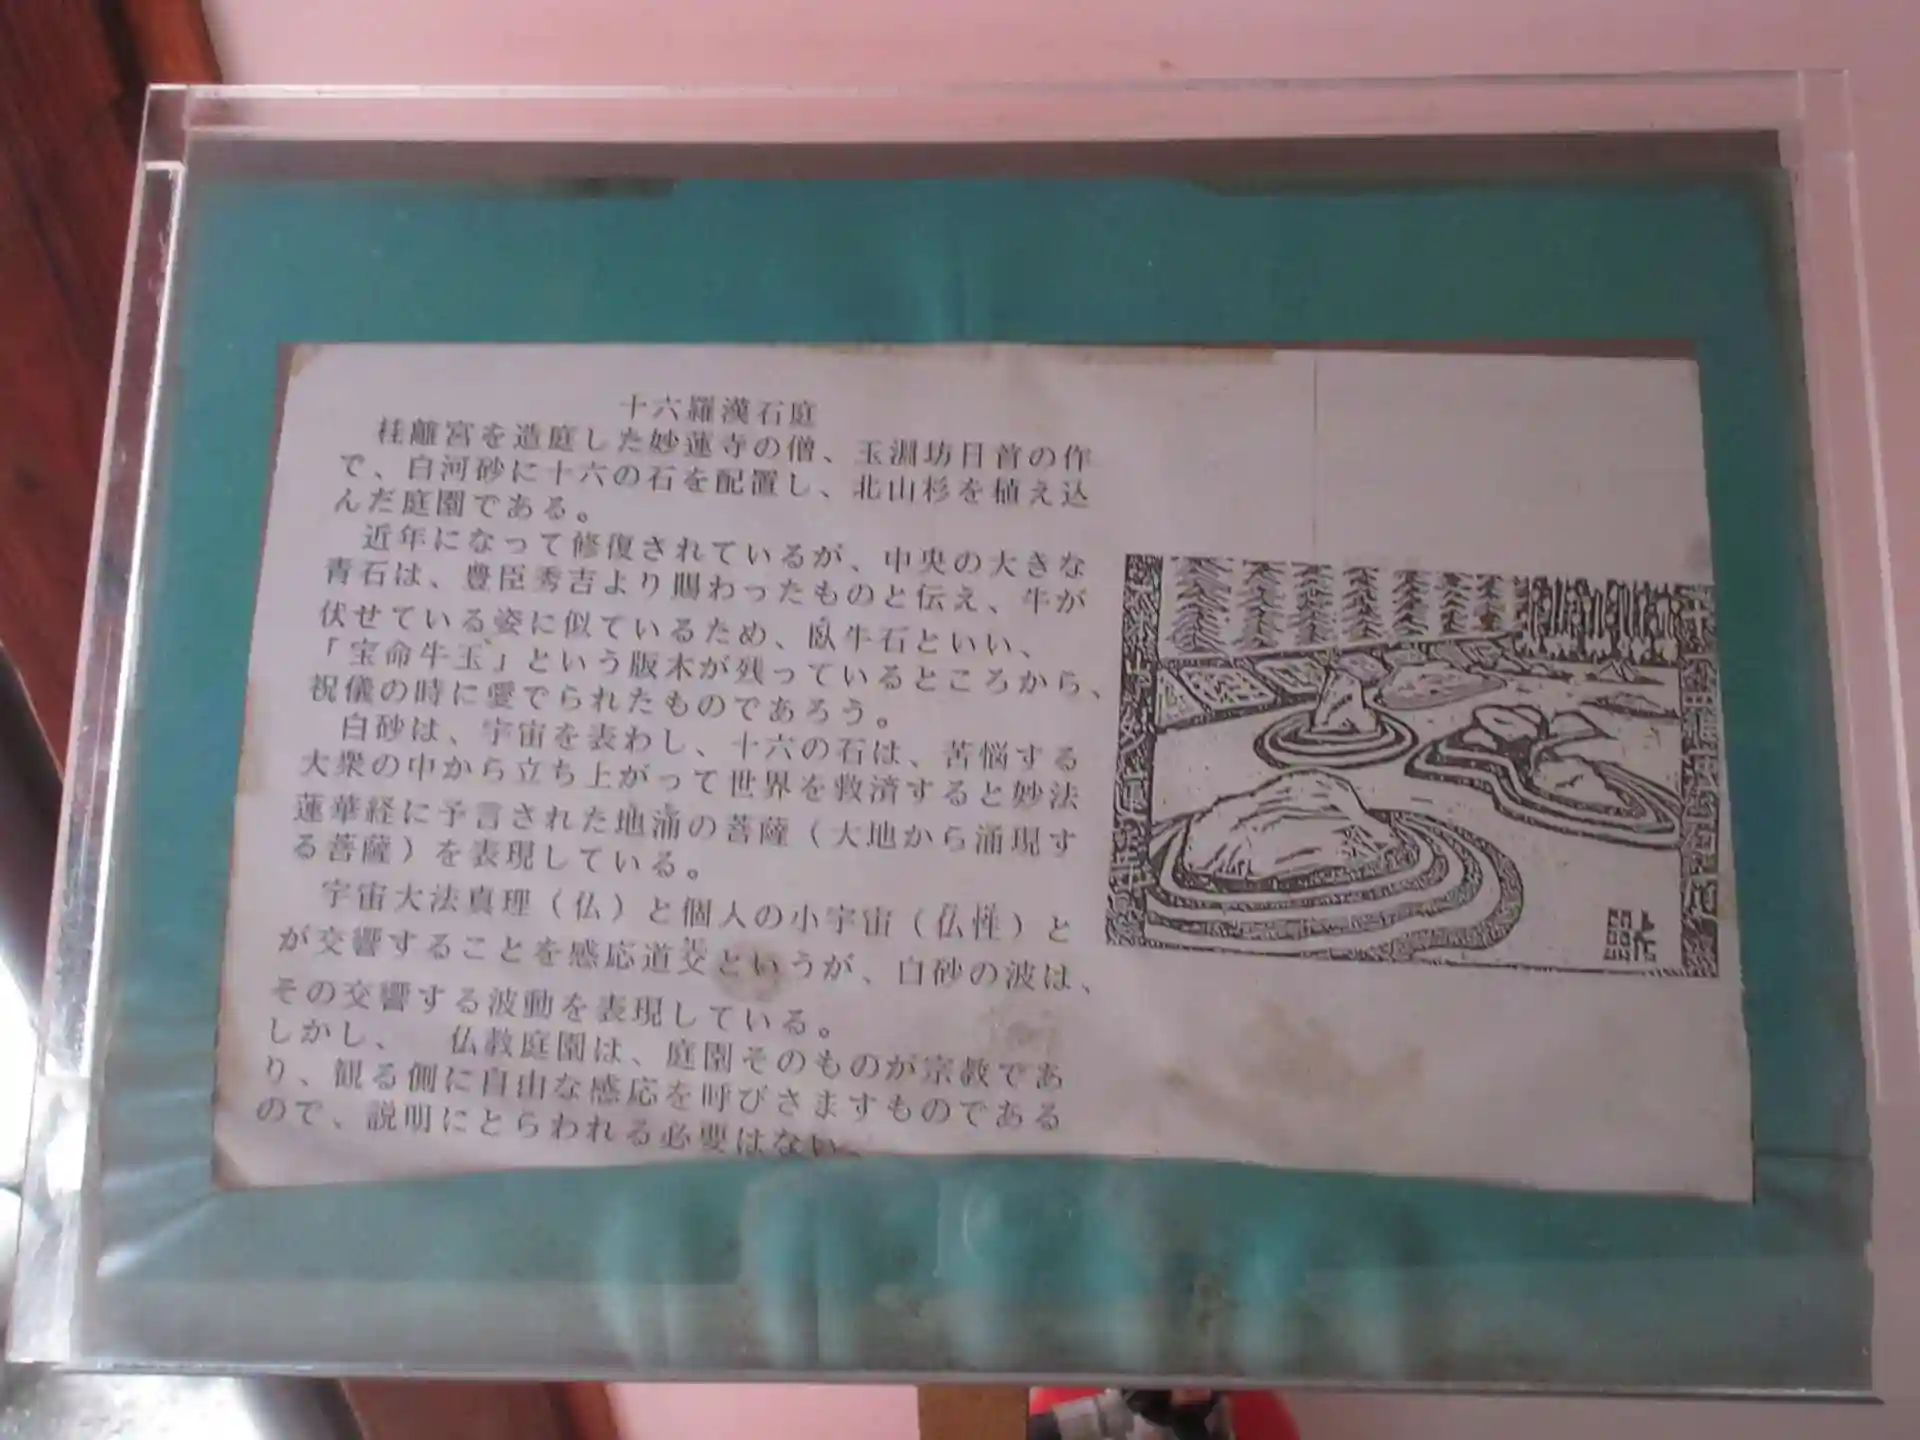 十六羅漢石庭
桂離宮を造庭した妙蓮寺の僧、玉淵坊日首の作
で、白河砂に十六の石を配置し、北山杉を植え込
んだ庭園である。
近年になって修復されているが、中央の大きな
青石は、豊臣秀吉より賜わったものと伝え、牛が
伏せている姿に似ているため、臥牛石といい、
「宝命牛玉」という版木が残っているところから、
祝儀の時に愛でられたものであろう。
白砂は、宇宙を表わし、十六の石は、苦悩する
大衆の中から立ち上がって世界を救済すると妙法
蓮華経に予言された地涌の菩薩（大地から涌現す
る菩薩）を表現している。
宇宙大法真理（仏）と個人の小宇宙（仏性）と
が交響することを感応道交というが、白砂の波は、
その交響する波動を表現している。
しかし、　仏教庭園は、庭園そのものが宗教であ
り、観る側に自由な感応を呼びさますものである
ので、説明にとらわれる必要はない。